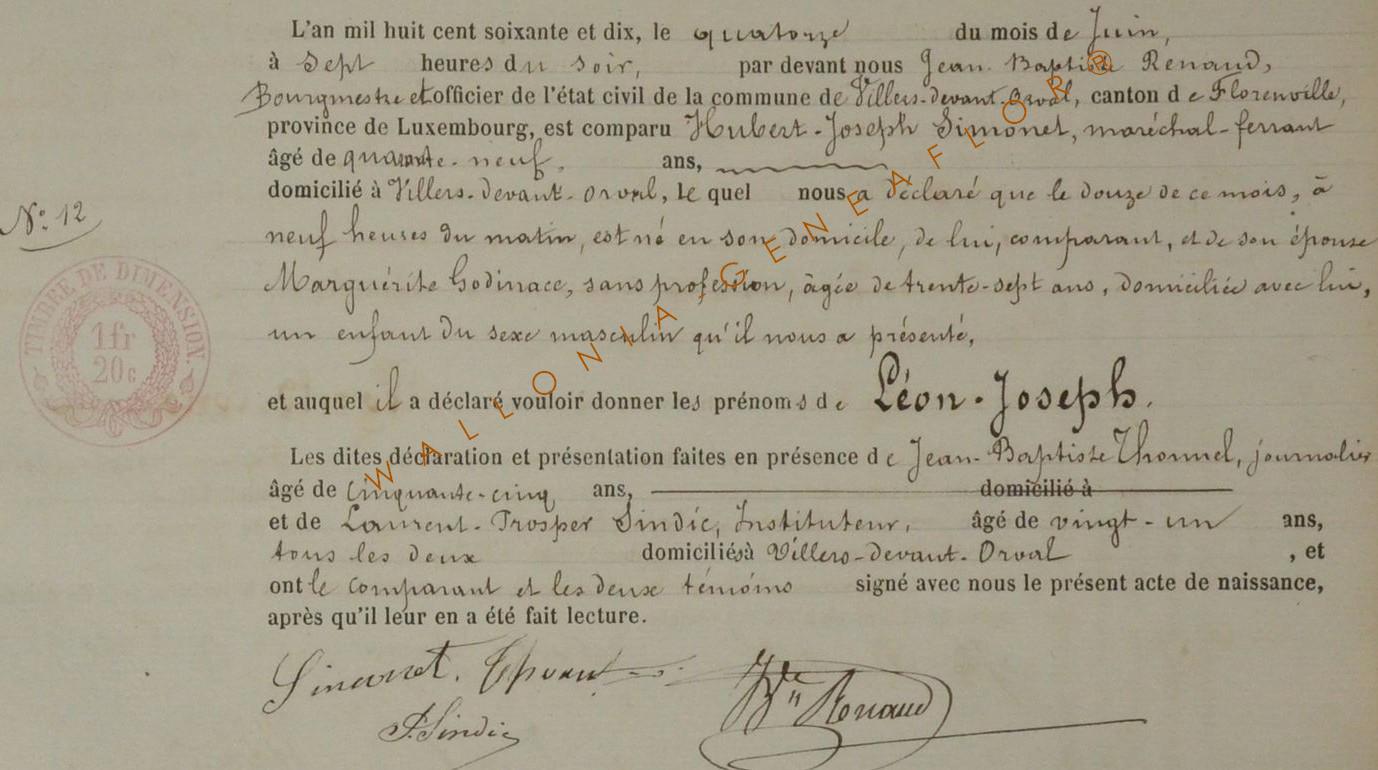 L'an mil huit cent soixante et dix, le quatorze du mois de Juin,
à Sept heures du soir, par devant nous Jean Baptiste Renaud,
Bourgmestre et officier de l'état civil de la commune de Villers-devant-Orval, canton de Florenville,
province de Luxembourg, est comparu Hubert-Joseph Simonet, maréchal-ferrant
âgé de quarante-neuf ans,
domicilié à Villers-devant-orval, le quel nous a déclaré que le douze de ce mois, à
N° 12
neuf heures du matin, est né en son domicile, de lui, comparant, et de son épouse
Marguérite Godinace, sans profession, âgée de trente-sept ans, domiciliée avec lui,
un enfant du sexe masculin qu'il nous a présenté,
TIMBRE DE DIMENSION.
1 fr
20 c
et auquel il a déclaré vouloir donner les prénoms de Léon-Joseph.
Les dites déclaration et présentation faites en présence de Jean-Baptiste journalier
âgé de cinquante-cinq ans, domicilié à
et de Laurent-Prosper Sindic, Instituteur, âgé de vingt-un ans,
tous les deux domiciliés à Villers-devant-Orval , et
ont le comparant et les deux témoins signé avec nous le présent acte de naissance,
après qu'il leur en a été fait lecture.
Simonet.
P. Sindic
Renaud
WALLONIA GENEAFLOR ®